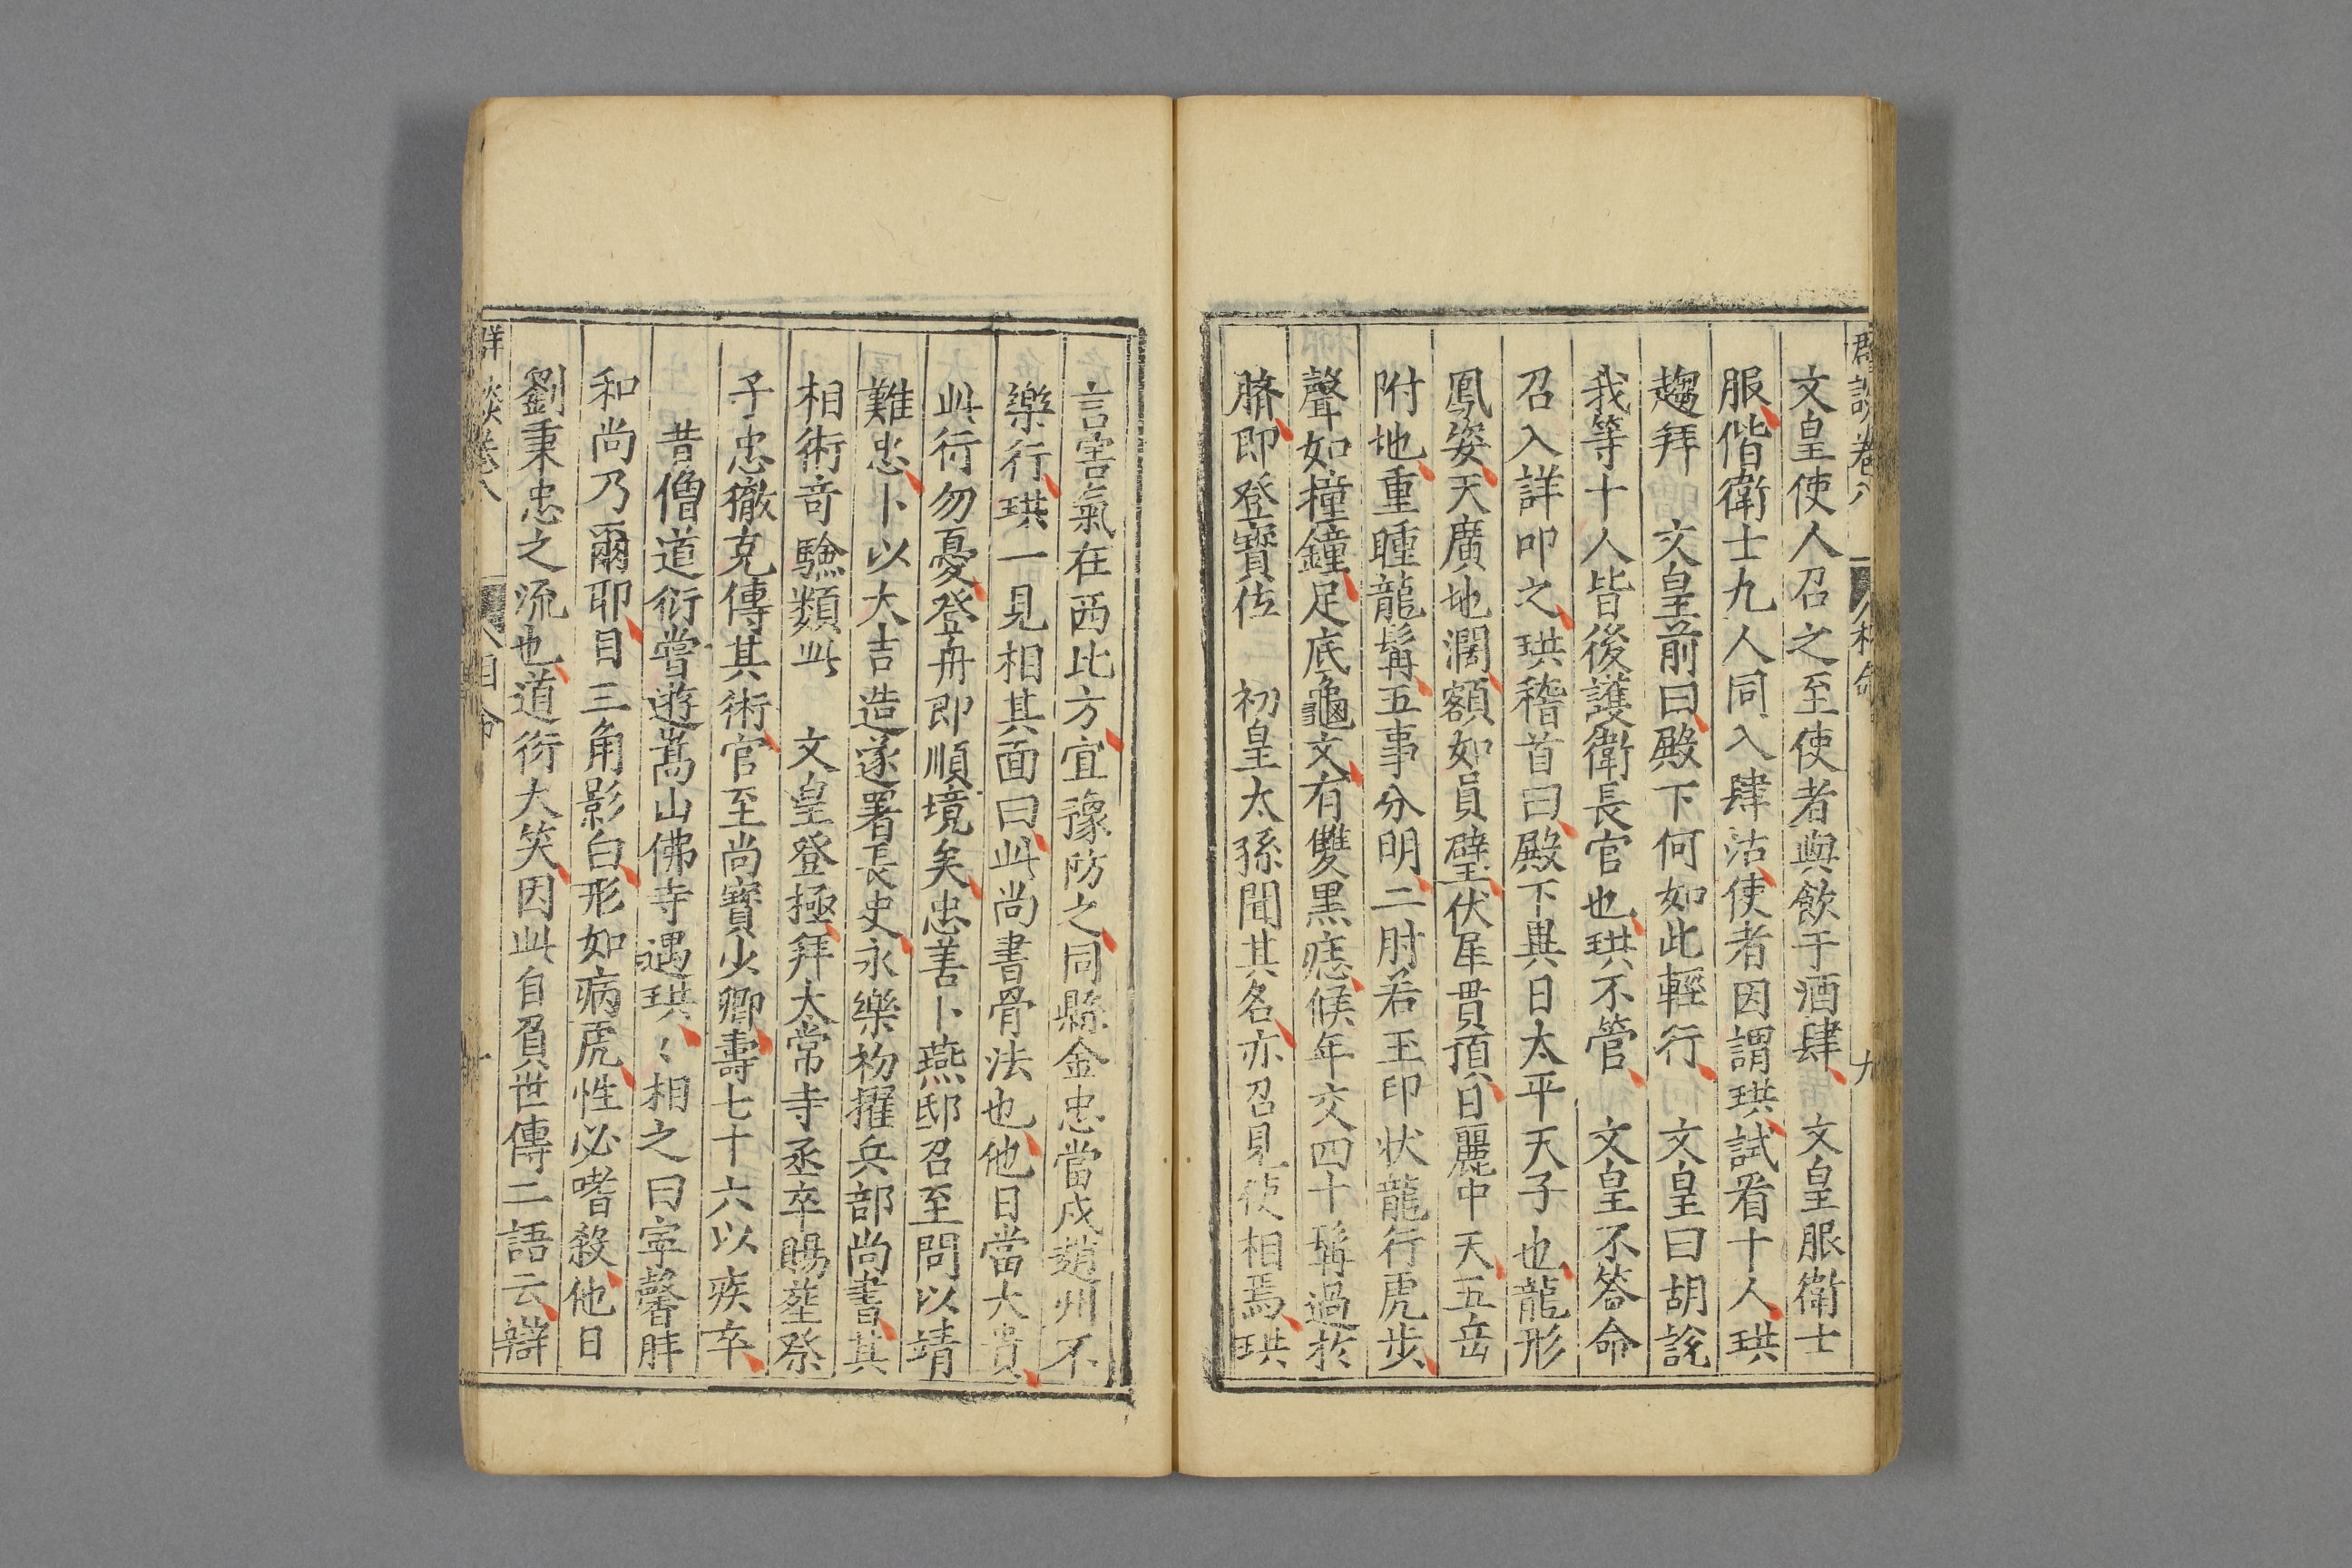 群談卷八 相命 九
文皇使人召之至使者與飲于酒肆 文皇服衛士
服偕衛士九人同入肆沽使者因謂珙試看十人珙
趨拜 文皇前曰殿下何如此輕行 文皇曰胡說
我等十人皆後護衛長官也珙不管 文皇不答命
召入詳叩之珙稽首曰殿下異日太平天子也龍形
鳳姿天廣地濶額如員璧伏犀貫頂日麗中天五岳
附地重瞳龍髯五事分明二肘若玉印状龍行虎步
聲如撞鐘足底龜文有雙黑痣候年交四十髯過於
臍即登寳位 初皇太孫聞其名亦召見使相焉珙
言害氣在西北方宜豫防之同縣金忠當戍趙州不
樂行珙一見相其面曰此尚書骨法也他日當大貴
此行勿憂登舟即順境矣忠善卜燕邸召至問以靖
難忠卜以大吉造遂署長史永樂初擢兵部尚書其
相術竒驗類此 文皇登極拜太常寺丞卒賜塟祭
子忠徹克傳其術官至尚寳少卿壽七十六以疾卒
昔僧道衍嘗遊嵩山佛寺遇珙〻相之曰寕馨胖
和尚乃爾耶目三角影白形如病虎性必嗜殺他日
劉秉忠之流也道衍大笑因此自負世傳二語云辯
群談卷八 相命 十